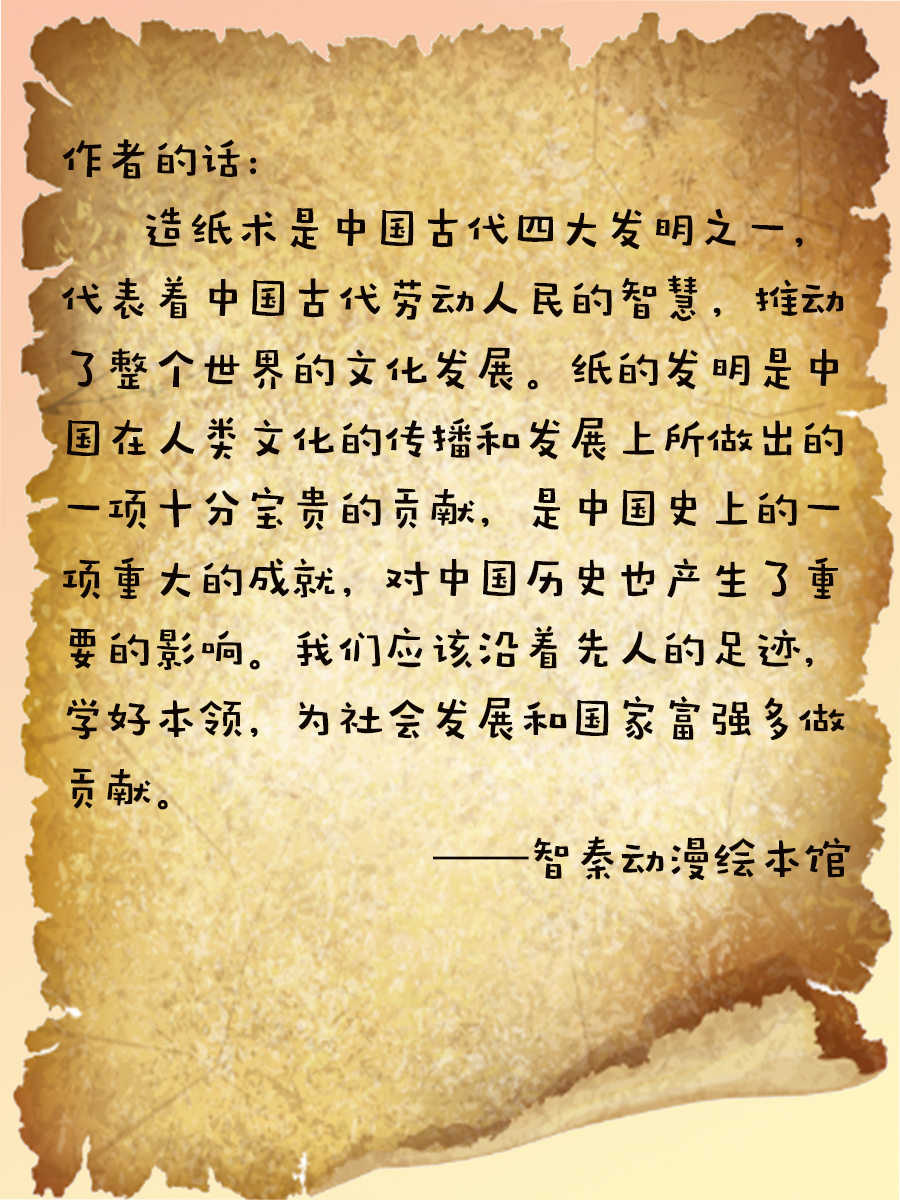 作者的话：
造纸术是中国古代四大发明之一，
代表着中国古代劳动人民的智慧，推动
了整个世界的文化发展。纸的发明是中
国在人类文化的传播和发展上所做出的
一项十分宝贵的贡献，是中国史上的一
项重大的成就，对中国历史也产生了重
要的影响。我们应该沿着先人的足迹，
学好本领，为社会发展和国家富强多做
贡献。
——智秦动漫绘本馆